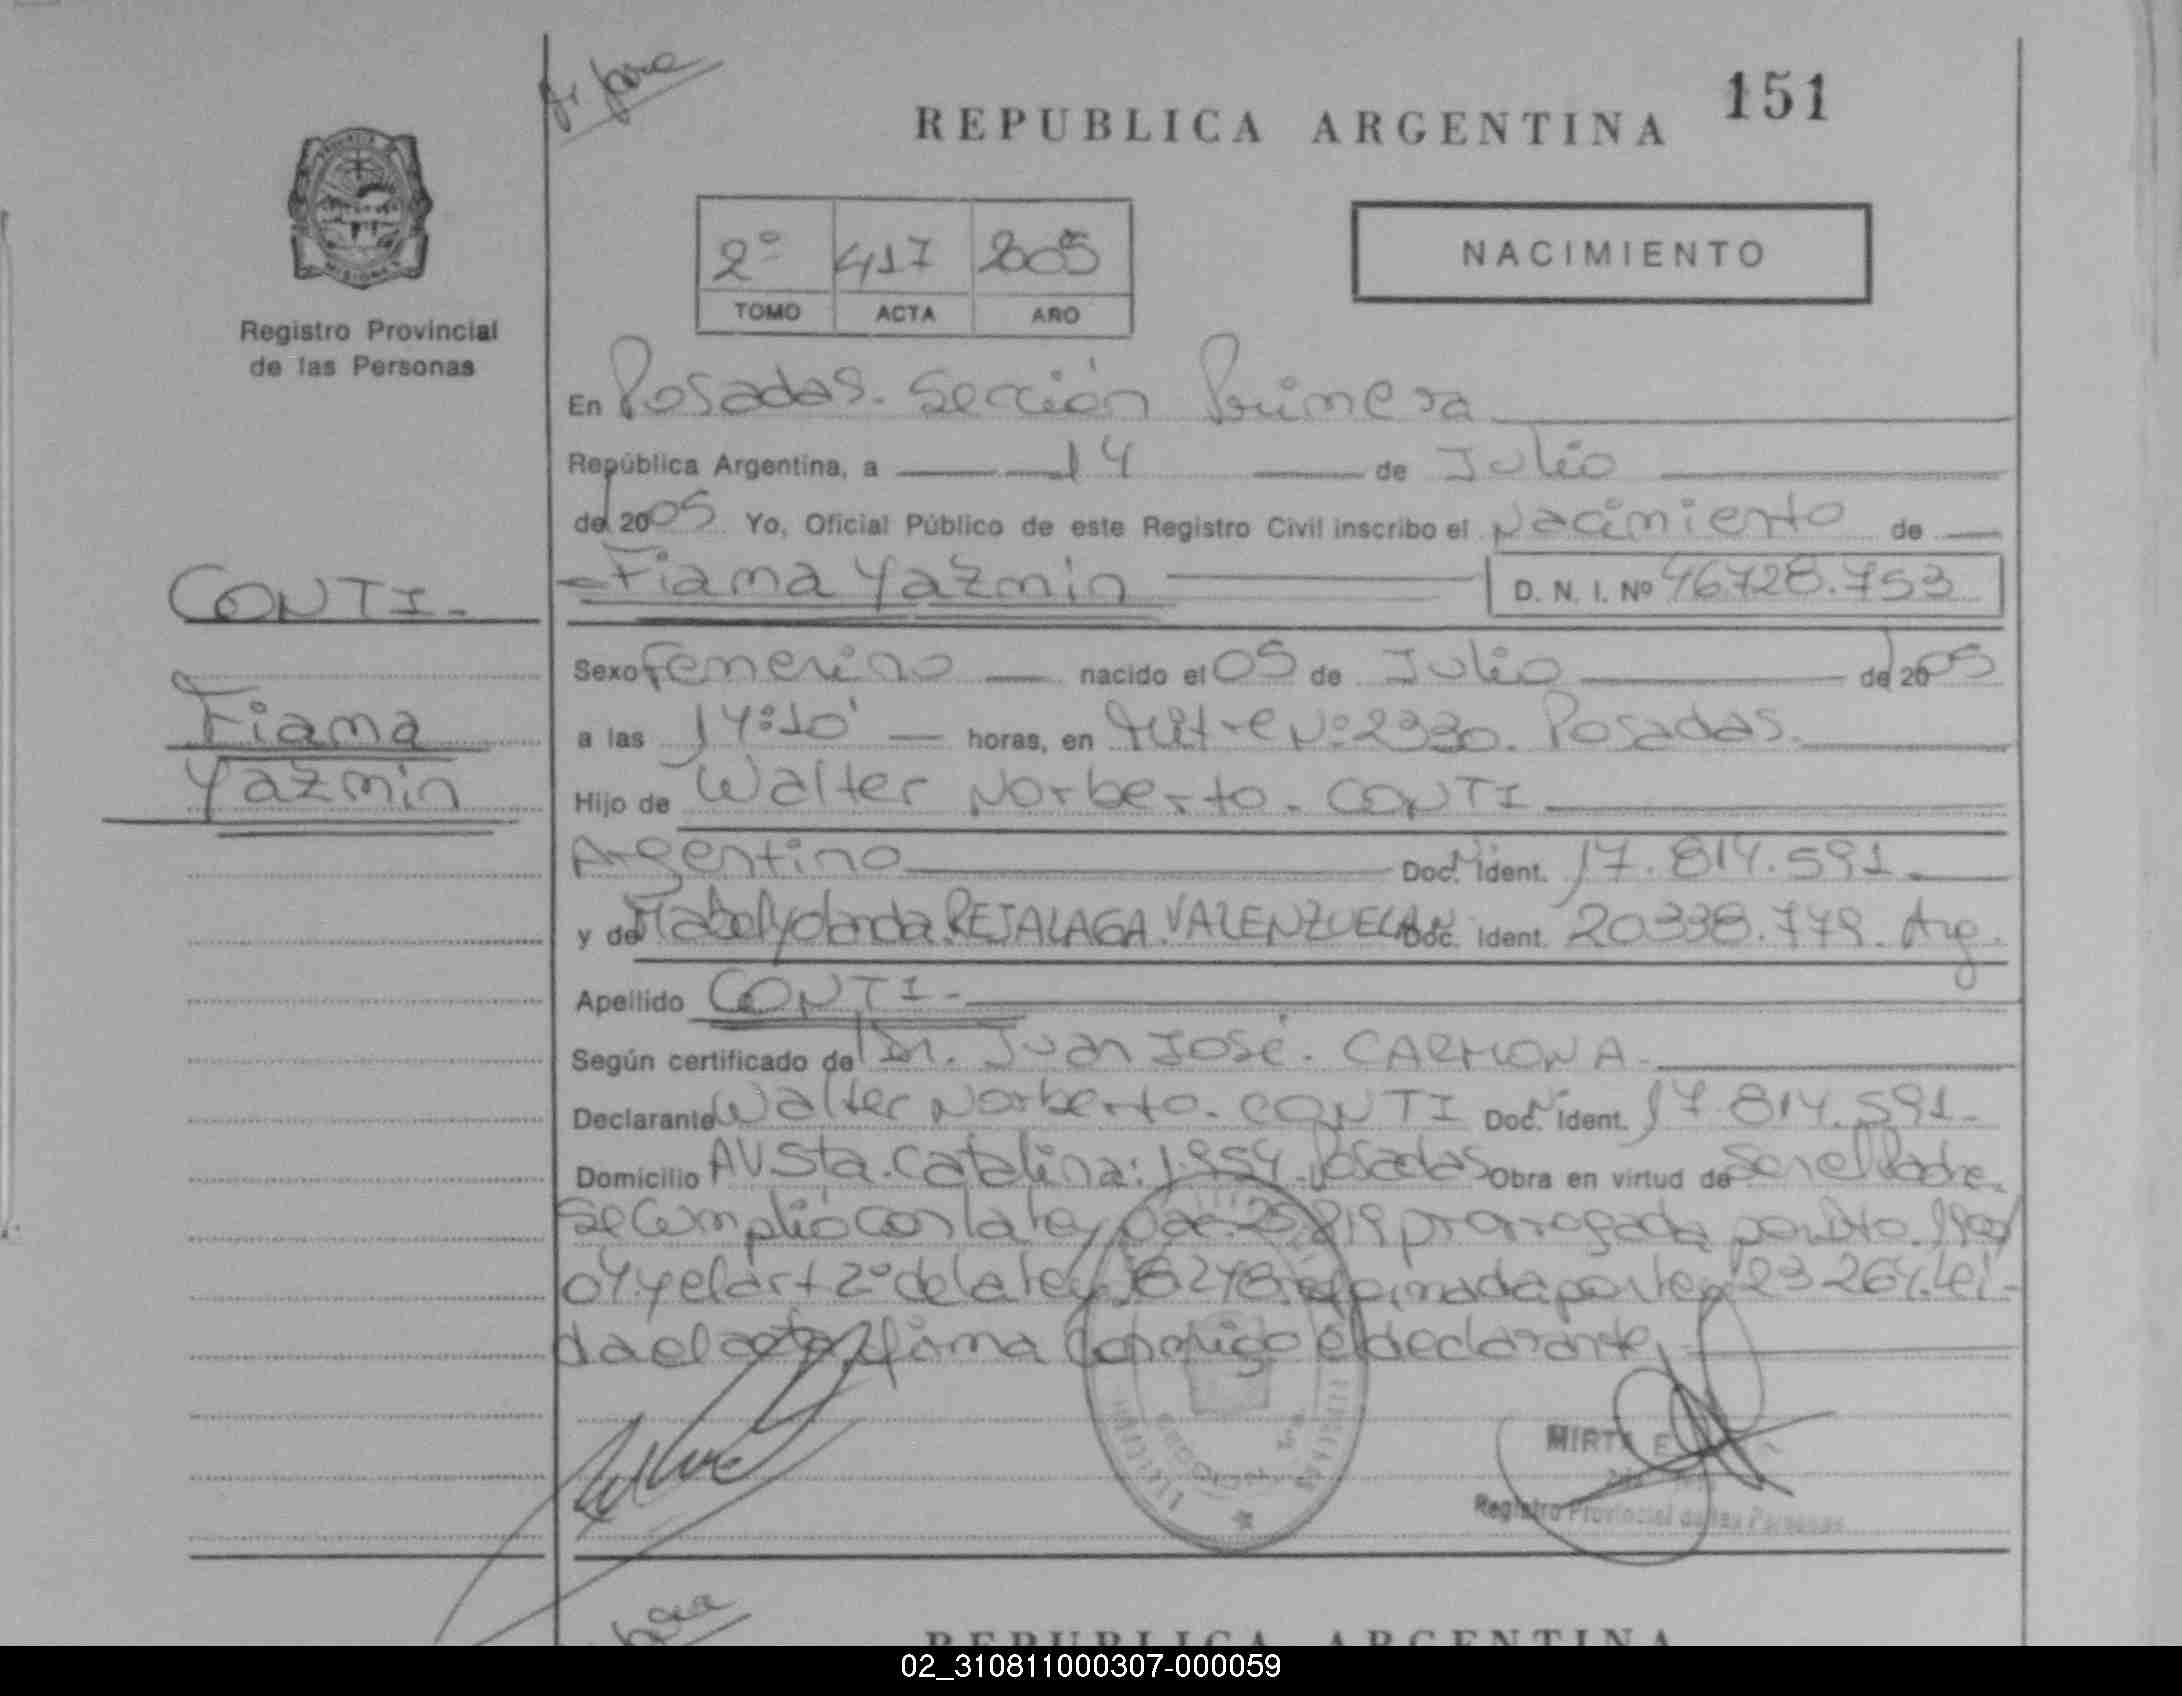 151
REPUBLICA ARGENTINA
Registro Provincial
de las Personas
MISIONES
2º 417 2005
TOMO ACTA AÑO
NACIMIENTO
En Posadas. Sección Primera
República Argentina, a 14 de Julio
del 2005 Yo, Oficial Público de este Registro Civil inscribo el Nacimiento de
Fiama Yazmin D. N. I. Nº 46728.753
CONTI.
Fiama
Yazmin
Sexo Femenino nacido el 05 de Julio del 2005
a las 14:10' horas, en Mitre Nº 2330. Posadas.
Hijo de Walter Norberto. CONTI
Argentino Doc. Ident. 17.814.591
y de Mabel Yolanda. REJALAGA. VALENZUELA Doc. Ident. 20338.779. Arg.
Apellido CONTI.
Según certificado de Dr. Juan José. CARMONA.
Declarante Walter Norberto. CONTI Doc. Ident. 17.814.591.
Domicilio AV Sta. Catalina: 1954. Posadas Obra en virtud de Ser el Padre.
Se Cumplió con la ley Nac. 25.819 prorrogada por Dto.
04 y el art 2º de la ley 18248. reformada por ley 23264. Leí-
da el acta, firma conmigo el declarante,
MIRTA E
Registro Provincial de las Personas
REPUBLICA ARGENTINA
02_310811000307-000059